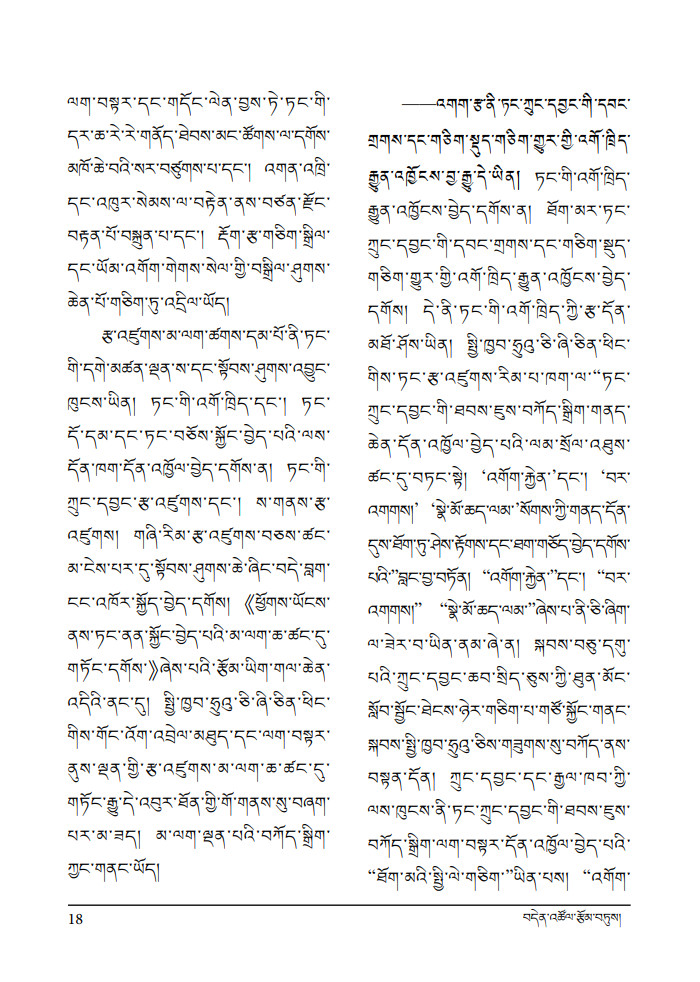 ལག་བསྟར་དང་གདོང་ལེན་བྱས་ཏེ་ཏང་གི་
དར་ཆ་རེ་རེ་གནོད་ཐེབས་མང་ཚོགས་ལ་དགོས་
མཁོ་ཆེ་བའི་སར་བཙུགས་པ་དང་། འགན་འཁྲི་
དང་འཁུར་སེམས་ལ་བརྟེན་ནས་བཙན་རྫོང་
བརྟན་པོ་བསྐྲུན་པ་དང་། རྡོག་རྩ་གཅིག་སྒྲིལ་
དང་ཡོམ་འགོག་གེགས་སེལ་གྱི་བསྒྲིལ་ཤུགས་
ཆེན་པོ་གཅིག་ཏུ་འདྲིལ་ཡོད།
རྩ་འཛུགས་མ་ལག་ཚགས་དམ་པོ་ནི་ཏང་
གི་དགེ་མཚན་ལྡན་ས་དང་སྟོབས་ཤུགས་འབྱུང་
ཁུངས་ཡིན། ཏང་གི་འགོ་ཁྲིད་དང་། ཏང་
དོ་དམ་དང་ཏང་བཅོས་སྐྱོང་བྱེད་པའི་ལས་
དོན་ཁག་དོན་འཁྱོལ་བྱེད་དགོས་ན། ཏང་གི་
ཀྲུང་དབྱང་རྩ་འཛུགས་དང་། ས་གནས་རྩ་
འཛུགས། གཞི་རིམ་རྩ་འཛུགས་བཅས་ཚང་
མ་ངེས་པར་དུ་སྟོབས་ཤུགས་ཆེ་ཞིང་བདེ་བླག་
ངང་འཁོར་སྐྱོད་བྱེད་དགོས། 《ཕྱོགས་ཡོངས་
ནས་ཏང་ནན་སྐྱོང་བྱེད་པའི་མ་ལག་ཆ་ཚང་དུ་
གཏོང་དགོས་》ཞེས་པའི་རྩོམ་ཡིག་གལ་ཆེན་
འདིའི་ནང་དུ། སྤྱི་ཁྱབ་ཧྲུའུ་ཅི་ཞི་ཅིན་ཕིང་
གིས་གོང་འོག་འབྲེལ་མཐུད་དང་ལག་བསྟར་
ནུས་ལྡན་གྱི་རྩ་འཛུགས་མ་ལག་ཆ་ཚང་དུ་
གཏོང་རྒྱུ་དེ་འབུར་ཐོན་གྱི་གོ་གནས་སུ་བཞག་
པར་མ་ཟད། མ་ལག་ལྡན་པའི་བཀོད་སྒྲིག་
ཀྱང་གནང་ཡོད།
——འགག་རྩ་ནི་ཏང་ཀྲུང་དབྱང་གི་དབང་
གྲགས་དང་གཅིག་སྡུད་གཅིག་གྱུར་གྱི་འགོ་ཁྲིད་
རྒྱུན་འཁྱོངས་བྱ་རྒྱུ་དེ་ཡིན། ཏང་གི་འགོ་ཁྲིད་
རྒྱུན་འཁྱོངས་བྱེད་དགོས་ན། ཐོག་མར་ཏང་
ཀྲུང་དབྱང་གི་དབང་གྲགས་དང་གཅིག་སྡུད་
གཅིག་གྱུར་གྱི་འགོ་ཁྲིད་རྒྱུན་འཁྱོངས་བྱེད་
དགོས། དེ་ནི་ཏང་གི་འགོ་ཁྲིད་ཀྱི་རྩ་དོན་
མཐོ་ཤོས་ཡིན། སྤྱི་ཁྱབ་ཧྲུའུ་ཅི་ཞི་ཅིན་ཕིང་
གིས་ཏང་རྩ་འཛུགས་རིམ་པ་ཁག་ལ་“ཏང་
ཀྲུང་དབྱང་གི་ཐབས་ཇུས་བཀོད་སྒྲིག་གནད་
ཆེན་དོན་འཁྱོལ་བྱེད་པའི་ལམ་སྲོལ་འཐུས་
ཚང་དུ་བཏང་སྟེ། ‘འགོག་རྐྱེན་’དང་། ‘བར་
འགགས།’ ‘སྣེ་མོ་ཆད་ལམ་’སོགས་ཀྱི་གནད་དོན་
དུས་ཐོག་ཏུ་ཤེས་རྟོགས་དང་ཐག་གཅོད་བྱེད་དགོས་
པའི་”བླང་བྱ་བཏོན། “འགོག་རྐྱེན་”དང་། “བར་
འགགས།” “སྣེ་མོ་ཆད་ལམ་”ཞེས་པ་ནི་ཅི་ཞིག་
ལ་ཟེར་བ་ཡིན་ནམ་ཞེ་ན། སྐབས་བཅུ་དགུ་
པའི་ཀྲུང་དབྱང་ཆབ་སྲིད་ཅུས་ཀྱི་ཐུན་མོང་
སློབ་སྦྱོང་ཐེངས་ཉེར་གཅིག་པ་གཙོ་སྐྱོང་གནང་
སྐབས་སྤྱི་ཁྱབ་ཧྲུའུ་ཅིས་གཟུགས་སུ་བཀོད་ནས་
བསྟན་དོན། ཀྲུང་དབྱང་དང་རྒྱལ་ཁབ་ཀྱི་
ལས་ཁུངས་ནི་ཏང་ཀྲུང་དབྱང་གི་ཐབས་ཇུས་
བཀོད་སྒྲིག་ལག་བསྟར་དོན་འཁྱོལ་བྱེད་པའི་
“ཐོག་མའི་སྤྱི་ལེ་གཅིག་”ཡིན་པས། “འགོག་
18
བདེན་འཚོལ་རྩོམ་བཏུས།